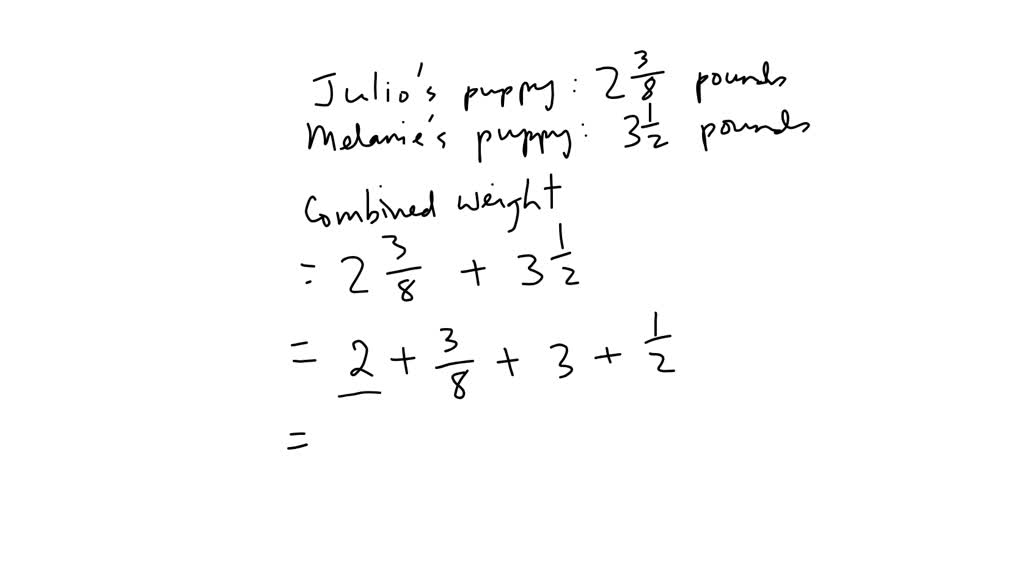 Julio's puppy: 2 3/8 pounds
Melanie's puppy: 3 1/2 pounds
Combined weight
= 2 3/8 + 3 1/2
= 2 + 3/8 + 3 + 1/2
=